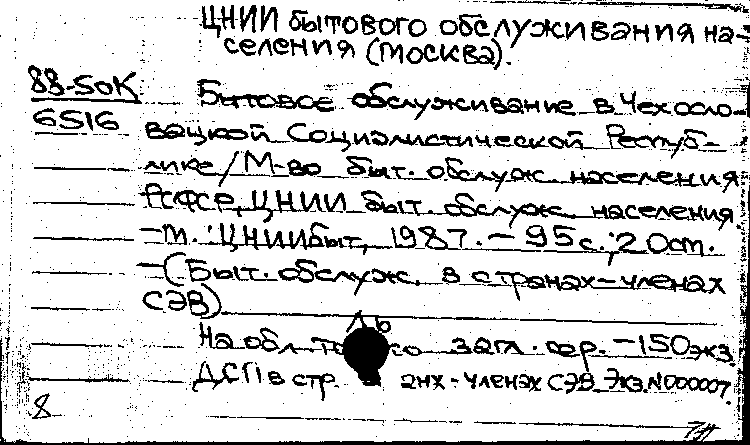 ЦНИИ бытового обслуживания на-
селения (Москва).
88-50К
6516
Бытовое обслуживание в Чехосло-
вацкой Социалистической Респуб-
лике/М-во быт. обслуж. населения
РСФСР, ЦНИИ быт. обслуж. населения.
-М.: ЦНИИбыт, 1987. - 95 с.; 20 см.
-(Быт. обслуж. в странах-членах
СЭВ).
На обл. только загл. сер. - 150 экз.
ДСП в стр. анх-членах СЭВ. Экз. N 000007.
8